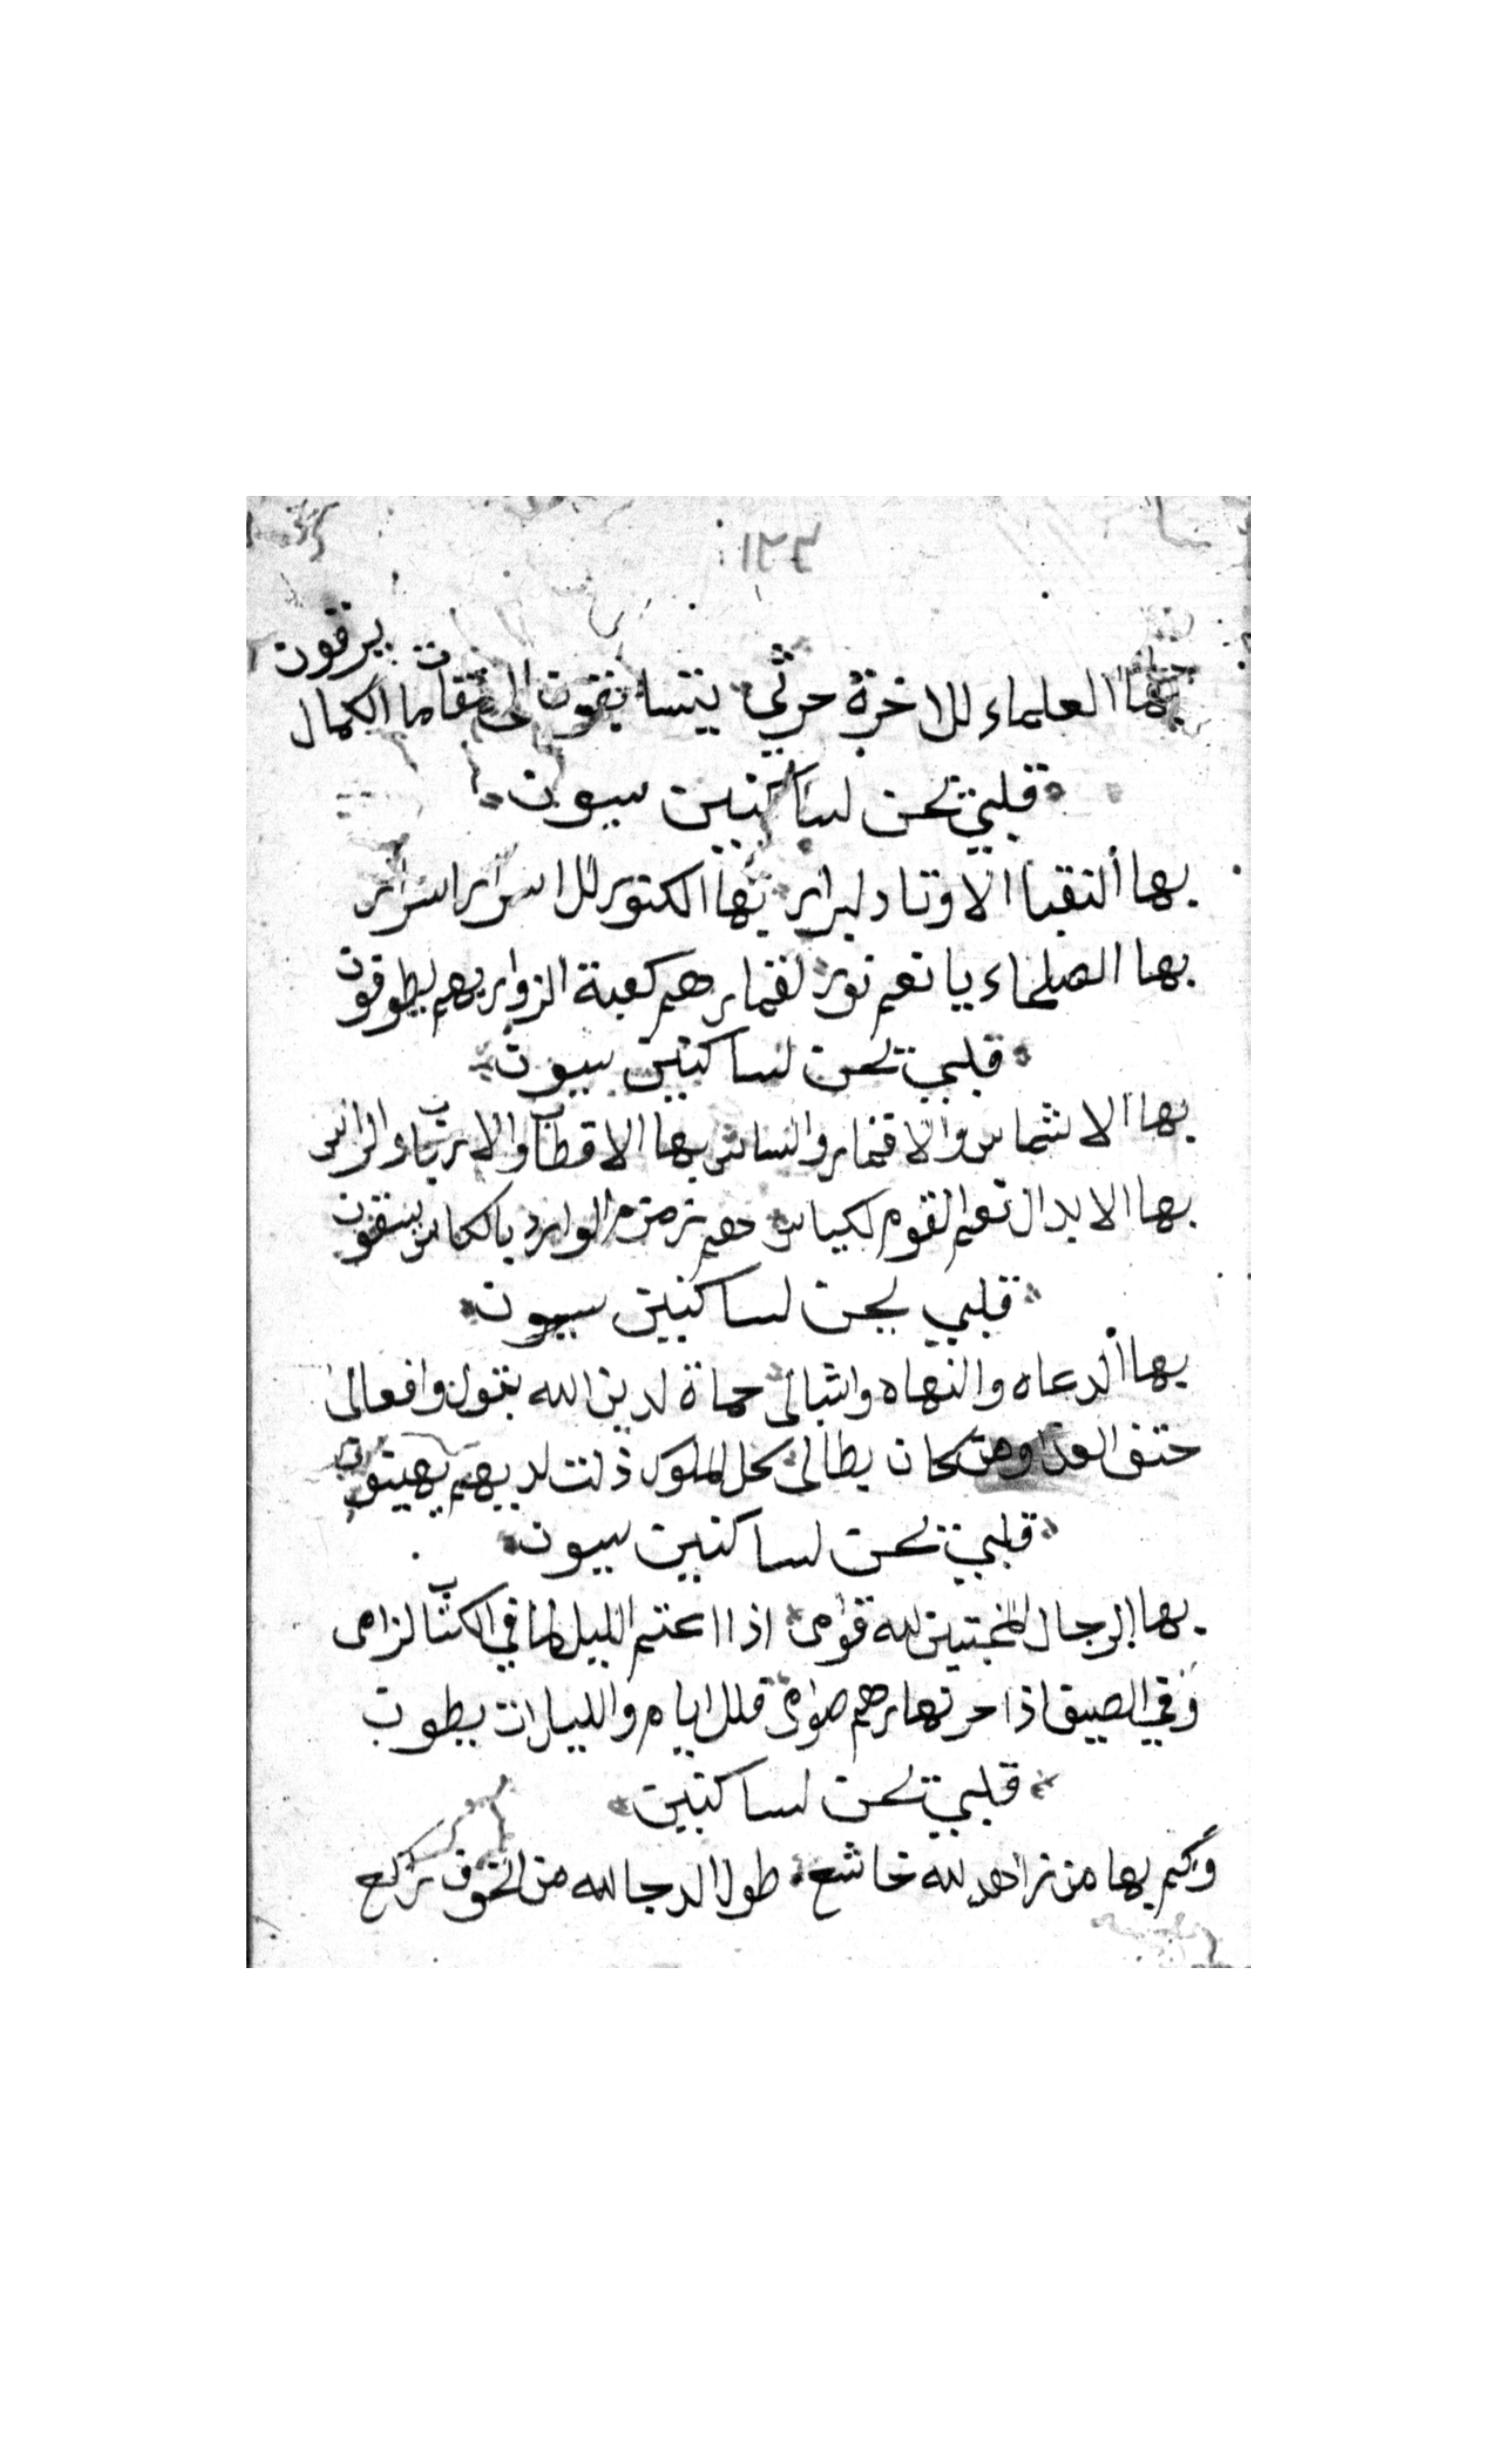 ١٢٢
بها العلماء للاخرة حرثي يتسابقون الى مقامات الكمال يرقون
قلبي تحن لساكنين سيون
بها النقبا الاوتاد لبرار بها الكنوز للاسرار اسرار
بها الصلحاء يا نعم نور لقمار هم كعبة الزوار بهم يطوفون
قلبي تحن لساكنين سيون
بها الاشماس والاقمار والساس بها الاقطاب والارباب والراس
بها الابدال نعم القوم لكياس هم زمزم الوارد بالكاس يسقون
قلبي تحن لساكنين سيون
بها الدعاه والنهاه واشبالي حماة لدين الله بقول وافعالى
حتف العدا ومن كان بطالى كل الملوك ذلت لديهم يهيتون
قلبي تحن لساكنين سيون
بها الرجال المخبتين لله قوامى اذا اعتم الليل لها في الكتاب لزامى
وفي الصيف اذا حر نهارهم صوامى قلل ايام والليالات يطون
قلبي تحن لساكنين
وكم بها من زاهد لله خاشع طول الدجا لله من الخوف تركع